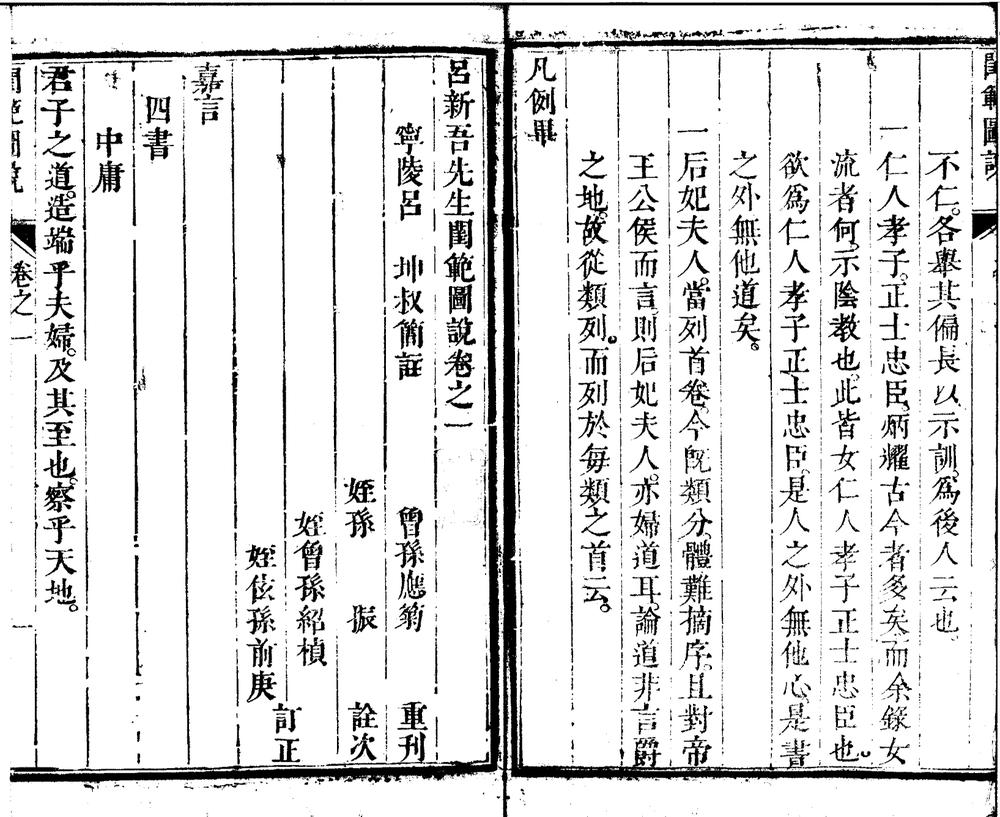 閨範圖說
不仁。各舉其偏長以示訓。爲後人云也
一仁人孝子。正士忠臣。炳耀古今者多矣而余錄女
流者何。示陰教也。此皆女仁人孝子正士忠臣也。
欲爲仁人孝子正士忠臣。是人之外無他心。是書
之外無他道矣。
一后妃夫人。當列首卷。今既類分。體難摘序。且對帝
王公侯而言。則后妃夫人。亦婦道耳。論道非言爵
之地。故從類列。而列於每類之首云。
凡例畢
呂新吾先生閨範圖說卷之一
寧陵呂 坤叔簡註 曾孫應菊 重刊
姪孫 振 詮次
姪曾孫紹楨
姪佽孫前庚 訂正
嘉言
四書
中庸
君子之道。造端乎夫婦。及其至也。察乎天地。
閨範圖說 卷之一 一